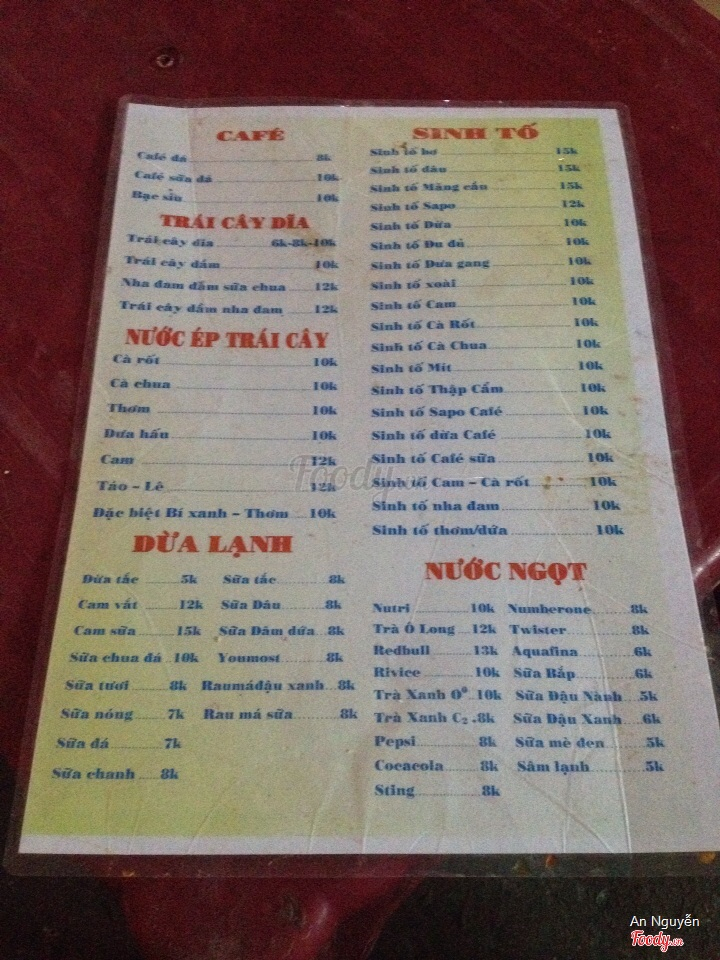 CAFÉ
Café đá 8k
Café sữa đá 10k
Bạc sỉu 10k
TRÁI CÂY DĨA
Trái cây dĩa 6k-8k-10k
Trái cây dầm 10k
Nha đam dầm sữa chua 12k
Trái cây dầm nha đam 12k
NƯỚC ÉP TRÁI CÂY
Cà rốt 10k
Cà chua 10k
Thơm 10k
Dưa hấu 10k
Cam 12k
Táo - Lê 12k
Đặc biệt Bí xanh - Thơm 10k
DỪA LẠNH
Dừa tắc 5k Sữa tắc 8k
Cam vắt 12k Sữa Dâu 8k
Cam sữa 15k Sữa Dâm dứa 8k
Sữa chua đá 10k Youmost 8k
Sữa tươi 8k Raumáđậu xanh 8k
Sữa nóng 7k Rau má sữa 8k
Sữa đá 7k
Sữa chanh 8k
SINH TỐ
Sinh tố bơ 15k
Sinh tố dâu 15k
Sinh tố Mãng cầu 15k
Sinh tố Sapo 12k
Sinh tố Dừa 10k
Sinh tố Đu đủ 10k
Sinh tố Dưa gang 10k
Sinh tố xoài 10k
Sinh tố Cam 10k
Sinh tố Cà Rốt 10k
Sinh tố Cà Chua 10k
Sinh tố Mít 10k
Sinh tố Thập Cẩm 10k
Sinh tố Sapo Café 10k
Sinh tố dừa Café 10k
Sinh tố Café sữa 10k
Sinh tố Cam - Cà rốt 10k
Sinh tố nha đam 10k
Sinh tố thơm/dứa 10k
NƯỚC NGỌT
Nutri 10k Numberone 8k
Trà Ô Long 12k Twister 8k
Redbull 13k Aquafina 6k
Rivice 10k Sữa Bắp 6k
Trà Xanh 0° 10k Sữa Đậu Nành 5k
Trà Xanh C₂ 8k Sữa Đậu Xanh 6k
Pepsi 8k Sữa mè đen 5k
Cocacola 8k Sâm lạnh 5k
Sting 8k
Foody.vn
An Nguyễn
Foody.vn